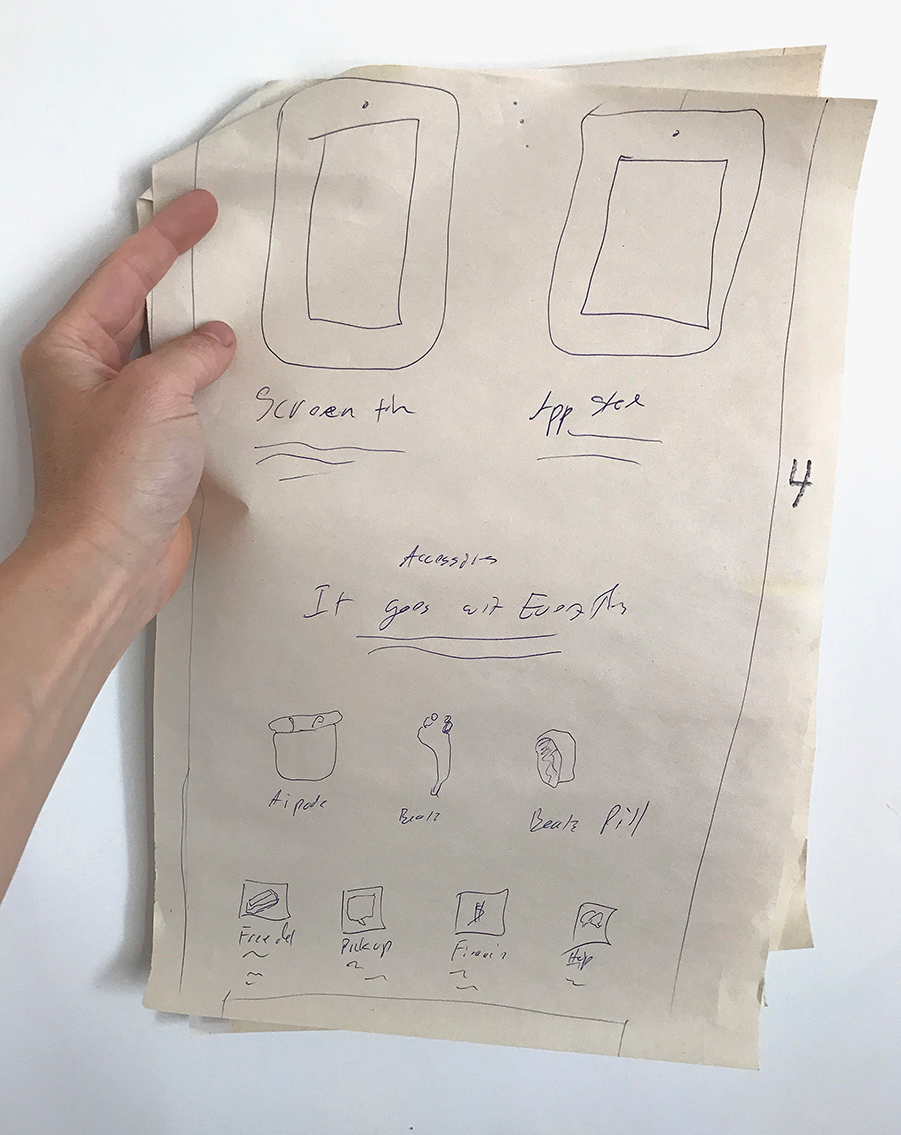 Screen
App
4
Accessires
It goes wit Everythn
Aipode
Beatz
Beatz Pill
Free del
Pick up
Financin
Help